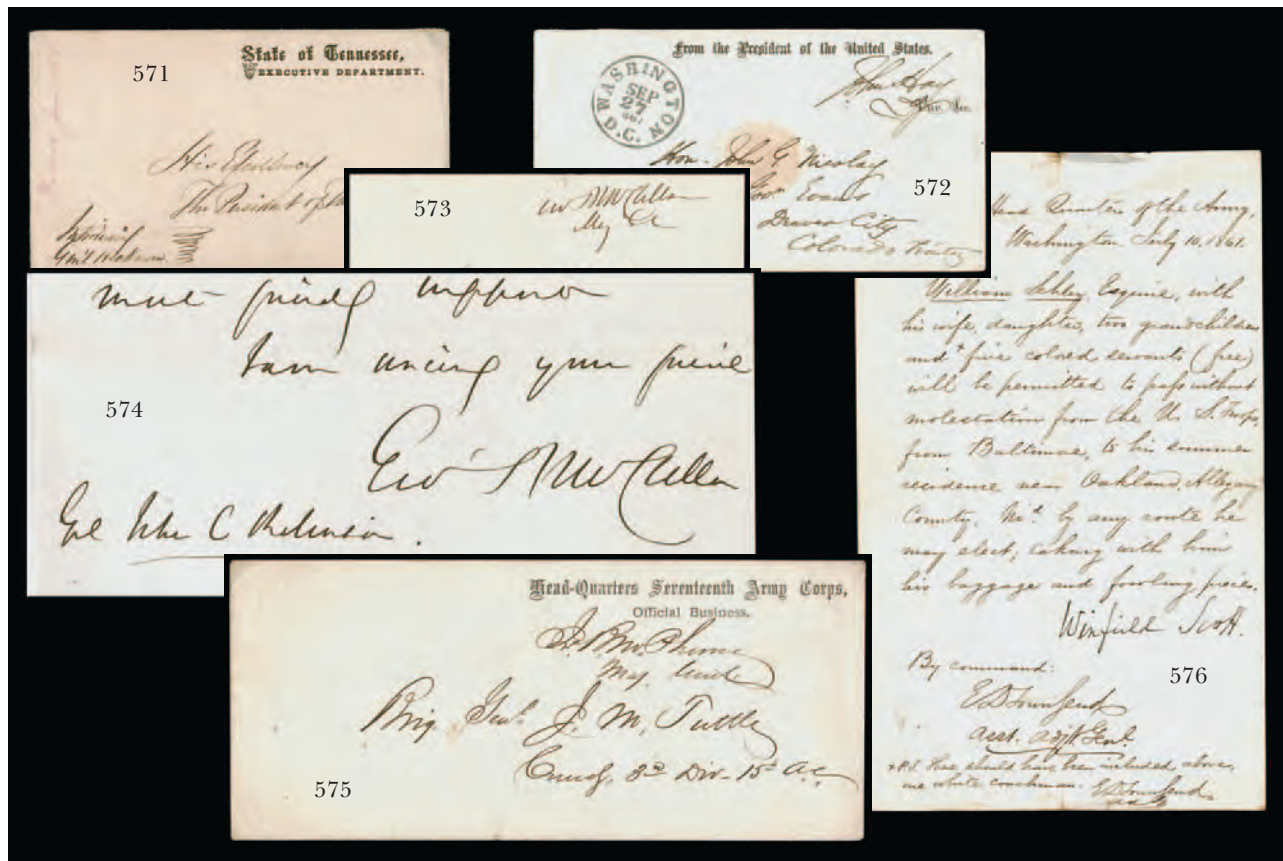 571
State of Tennessee,
EXECUTIVE DEPARTMENT.
His Excellency
The President of the
Introducing
Gen'l
From the President of the United States.
WASHINGTON D.C.
SEP
27
John Hay
Hon. John G. Nicolay
Gov. Evans
Denver City
Colorado
572
573
Geo B McClellan
Maj
most friendly
I am sincerely your friend
574
Geo B McClellan
Gnl John C Robinson.
Head-Quarters Seventeenth Army Corps,
Official Business.
Maj. Genl.
Brig Genl. J. M. Tuttle
Comdg. 3d Div. 15th A.C.
575
Head Quarters of the Army,
Washington July 10, 1861.
William Schley, Esquire, with
his wife, daughter, two grandchildren
and + five colored servants (free)
will be permitted to pass without
molestation from the U. S. Troops,
from Baltimore, to his summer
residence near Oakland, Allegany
County, Md. by any route he
may elect; taking with him
his baggage and fowling pieces.
Winfield Scott.
By command:
576
E D Townsend
Asst. Adjt. Genl.
+ P.S. There should have been included, above,
one white coachman. E D Townsend